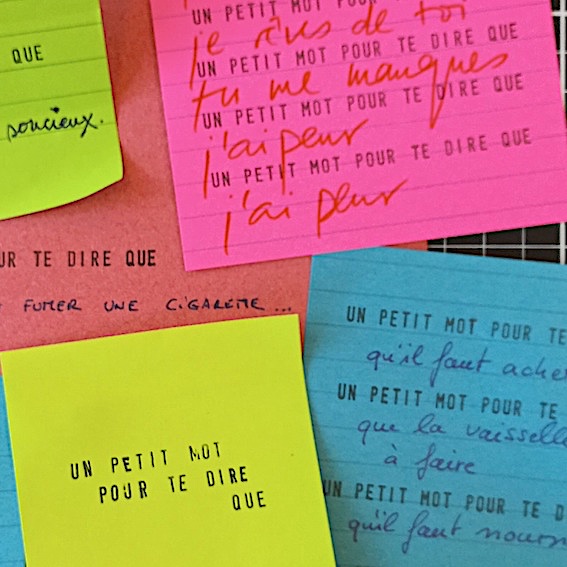 QUE
soucieux.
UN PETIT MOT POUR
je rêves de toi
UN PETIT MOT POUR TE DIRE QUE
tu me manques
UN PETIT MOT POUR TE DIRE QUE
j'ai peur
UN PETIT MOT POUR TE DIRE QUE
j'ai peur
UR TE DIRE QUE
FUMER UNE CIGARETTE...
UN PETIT MOT
POUR TE DIRE
QUE
UN PETIT MOT POUR TE
qu'il faut ache
UN PETIT MOT POUR TE
que la vaisselle
à faire
UN PETIT MOT POUR TE D
qu'il faut nourr